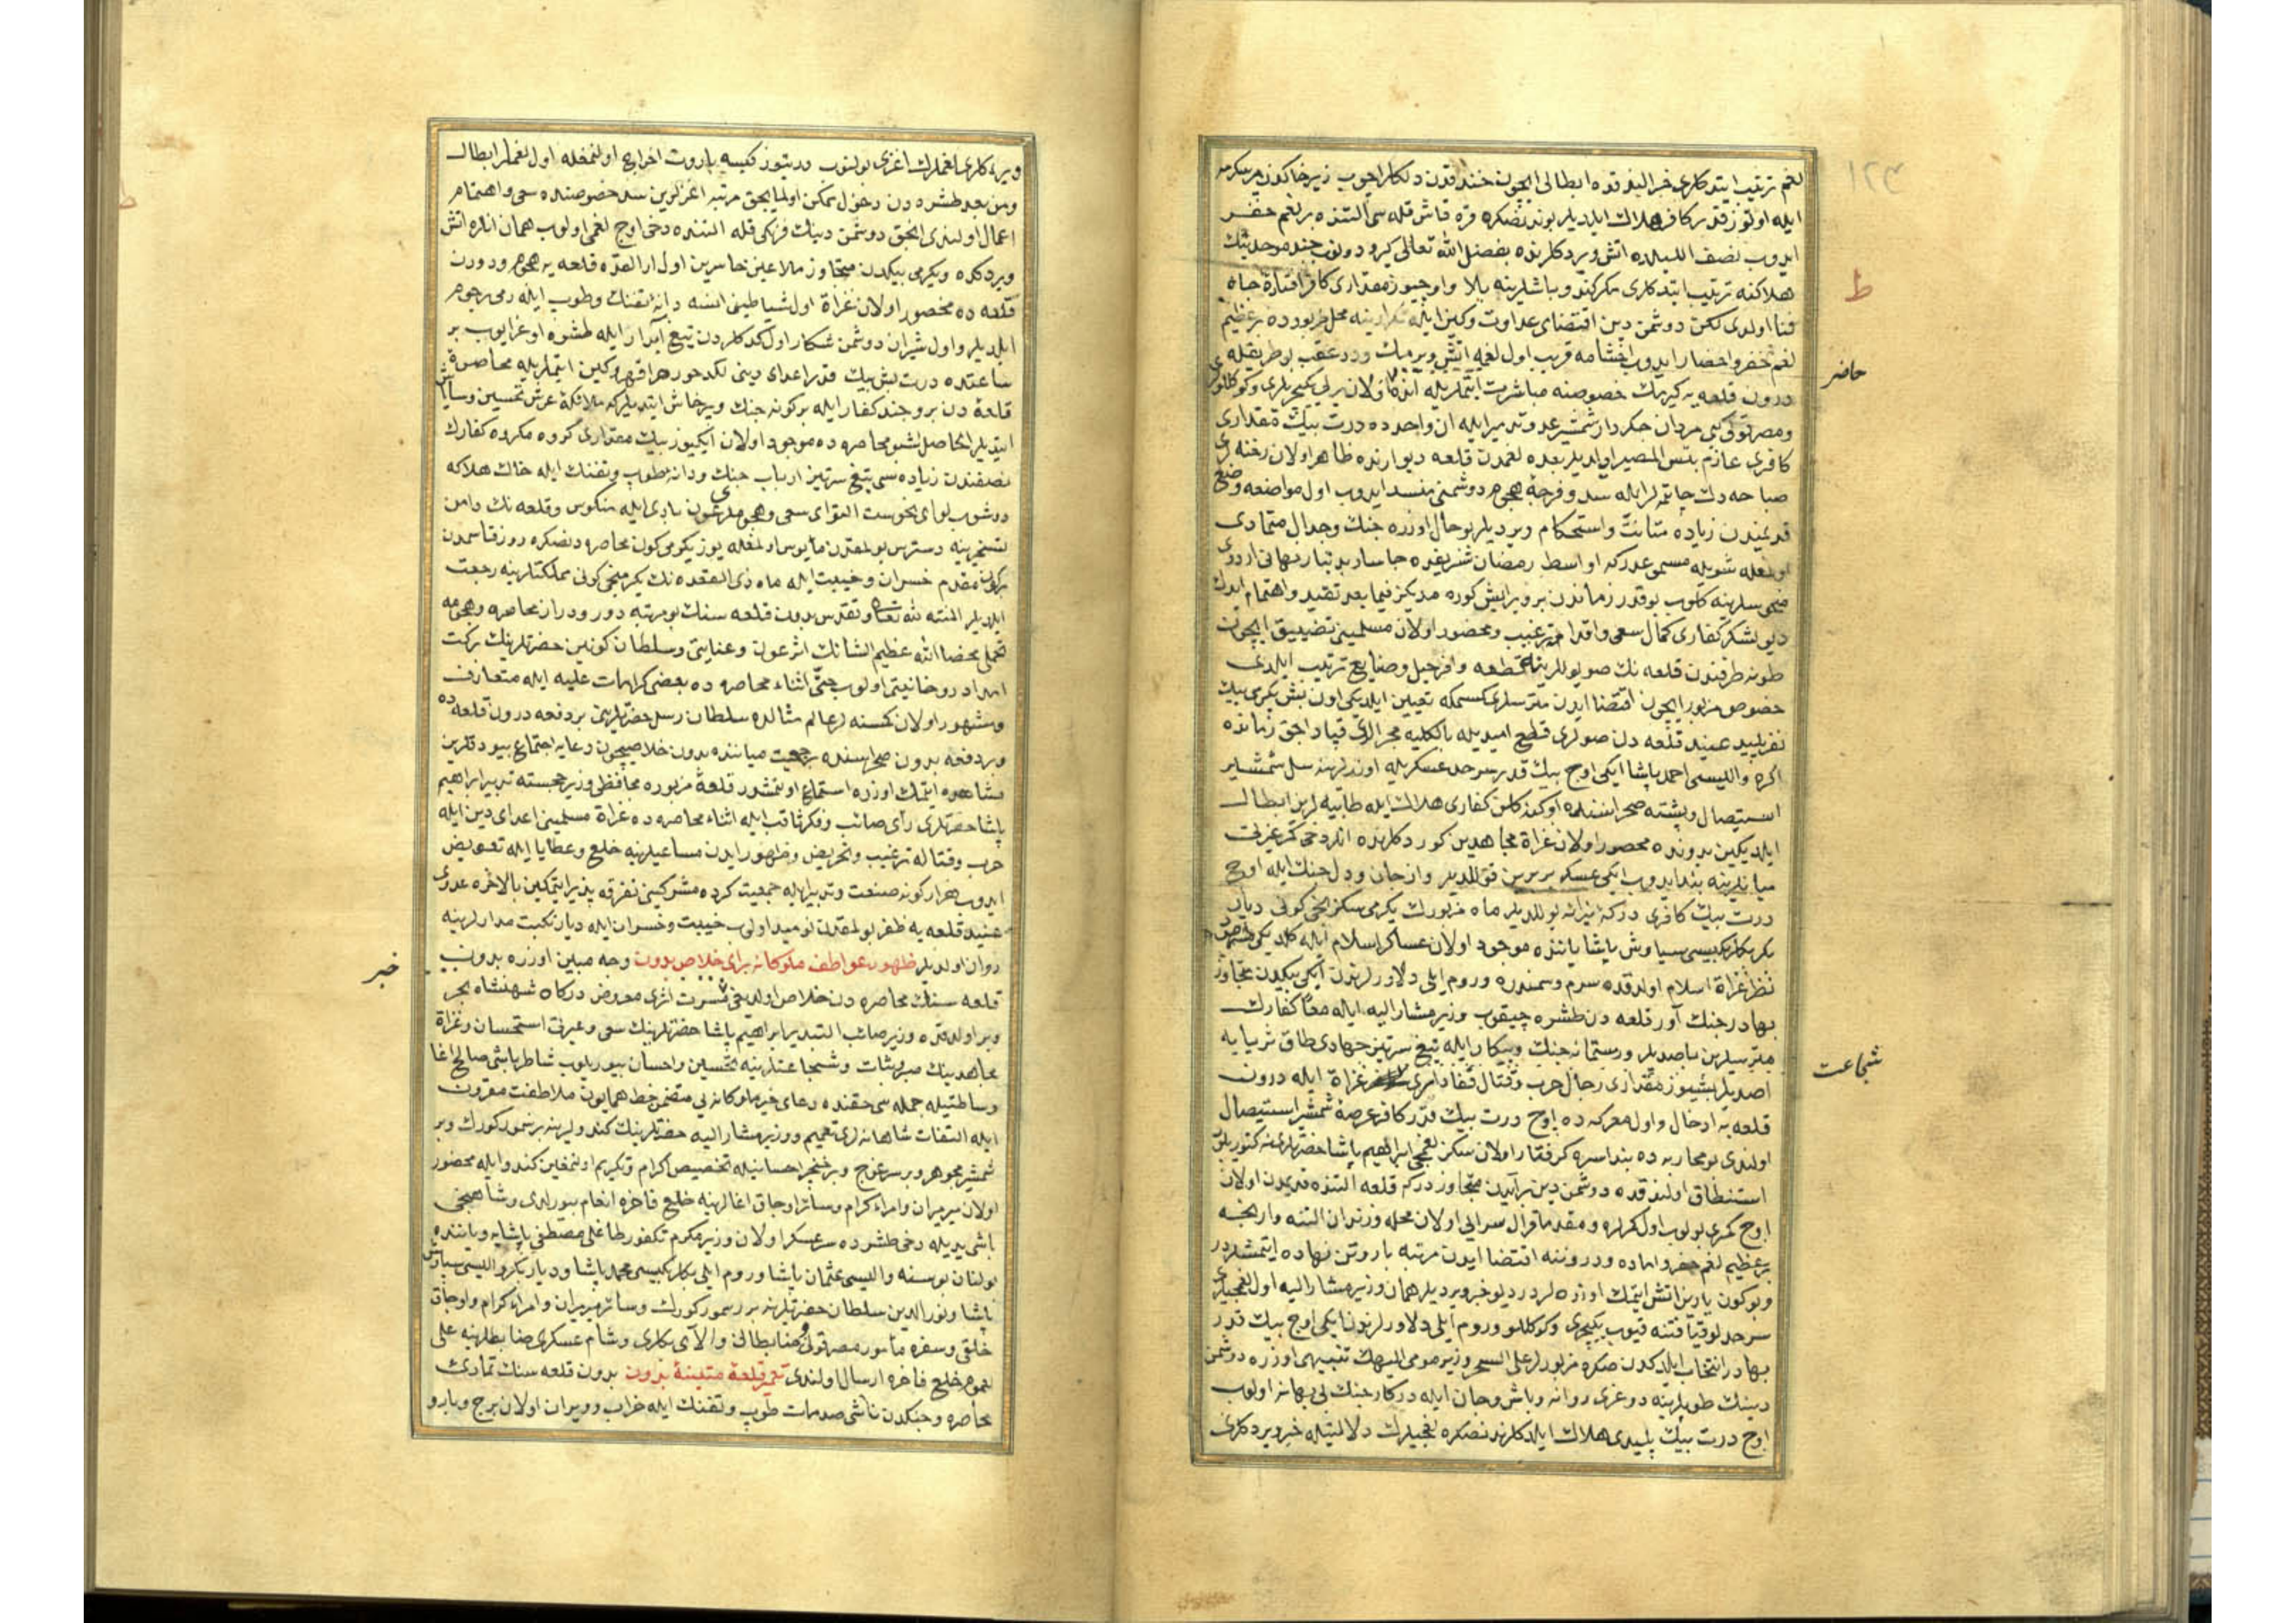 ١٢٣
لغم ترتیب ایتدکاری خبر النوب قدە ابطالی ایچون خندقدن دلکلر اچوب زیر خاکدن یر یکرمه
ایله اوتوز قدر کافر هلاک ایلدیلر بوندنصکره قره قاش قله سی التنده بر لغم حفر
ایدوب نصف اللیلده اتش ویردکلرنده بفضل الله تعالی کیرو دونوب چند موحدینك
هلاکنه ترتیب ایتدکاری مکر کندو باشلرینه بلا و اوچیوز مقداری کافر افتادۀ چاه
فنا اولدی لکن دوشمن دین اقتضای عداوت وکین ایله تکرار ینه محل مزبورده بر عظیم
لغم حفر واحضار ایدوب اخشامه قریب اول لغمه اتش ویرمك ودر عقب اول طریقله
درون قلعه یه کیرمك خصوصنه مباشرت ایتملریله آندە اولان یرلی یکیچریلری وکوکللو
ومصر قولی کبی مردان جکردار شمشیر عدو تدمیر ایله ان واحدده درت بیك مقداری
کافری عازم بئس المصیر ایلدیلر بعده لغمدن قلعه دیوارنده ظاهر اولان رخنه لری
صباحه دك چاتمه لر ایله سد و فرجۀ هجوم دوشمنی منسد ایدوب اول مواضعه وضع
قدیمندن زیاده متانت واستحکام ویردیلر بو حال اوزره جنك وجدال متمادی
اولمغله شویله مسمی عدرکه اواسط رمضان شریفده چاسار بدتبار بهانی اردوی
منحوسلرینه کلوب بو قدر زماندن برو برایش کوره مدیکز فیما بعد تقید واهتمام ایدك
دیو لشکر کفاری کمال سعی واقدامه ترغیب ومحصور اولان مسلمینی تضییق ایچون
طونه طرفندن قلعه نك صو یوللرینی قطعه وافر حیل وصنایع ترتیب ایلدی
خصوص مزبور ایچون اقتضا ایدن متریسلری کسمکه تعیین ایلدیکی اون بش یکرمی بیك
نفر پلید عنید قلعه دن صولری قطع امیدیله بالکلیه مجرالری قپادجق زمانده
اکره والیسی احمد پاشا ایکی اوچ بیك قدر سرحد عسکریله اوزرلرینه سل شمشیر
استیصال وپشته صحراسنده اوکنه کلن کفاری هلاك ایله طابیه لرین ابطال
ایلدیکین بدونده محصور اولان غزاة مجاهدین کوردکلرنده انلر دخی کمر غیرتی
میانلرینه بند ایدوب ایکی عسکر بربرین قوللدیلر واز جان ودل جنك ایله اوچ
درت بیك کافری درکۀ نیرانه یوللدیلر ماه مزبورك یکرمی سکزنجی کونی دیار
بکر بکلربکیسی سیاوش پاشا یاننده موجود اولان عساکر اسلام ایله کلدیکی
نظر غزاة اسلام اولدقده سرم وسمندره وروم ایلی دلاورلرندن ایکی بیکدن متجاوز
بهادر جنك آور قلعه دن طشره چیقوب وزیر مشار الیه ایله معا کفارك
متریسلرین باصدیلر ورستمانه جنك وپیکار ایله تیغ سرتیز جهادی طاق ثریایه
اصدیلر بشیوز مقداری رجال حرب وقتال غزاة ایله درون
قلعه یه ادخال واول معرکه ده اوچ درت بیك قدر کافر عرضۀ شمشیر استیصال
اولندی بو محاربه ده بند اسره کرفتار اولان سکز لغمجی ابراهیم پاشا حضرتلرینه کتوریلوب
استنطاق اولندقده دوشمن دین بر آیدن متجاوزدرکه قلعه التنده قدیمدن اولان
اوچ کمری بولوب اول کمرلره ومقدما قرال سرایی اولان محله وزندان التنه وارنجه
بر عظیم لغم حفر واماده ودروننه اقتضا ایدن مرتبه باروتن نهاده ایتمشلردر
وبوکون یارین اتش ایتمك اوزره لردر دیو خبر ویردیلر همان وزیر مشار الیه اول لغمجیلری
سرحدلو قیافتنه قیوب یکیچری وکوکللو وروم ایلی دلاورلرندن ایکی اوچ بیك قدر
بهادر انتخاب ایلدکدن صکره مزبورلر علی السحر وزیر مومی الیهك تنبیهی اوزره دوشمن
دینك طوپلرینه دوغری روانه وباش وجان ایله درکار جنك بی بهانه اولوب
اوچ درت بیك پلیدی هلاك ایلدکلرندنصکره لغمجیلرك دلالتیله خبر ویردکلری
ط
حاضر
شجاعت
ویره کلری لغملرك اغزی بولنوب درتیوز کیسه باروت اخراج اولنمغله اول لغملر ابطال
ومن بعد طشره دن دخول ممکن اولمایجق مرتبه اغزلرین سد خصوصنده سعی واهتمام
اعمال اولندی انجق دوشمن دینك فرنکی قله التنده دخی اوچ لغمی اولوب همان انلره اتش
ویردکده ویکرمی بیکدن متجاوز ملاعین خاسرین اول ارالقده قلعه یه هجوم ودرون
قلعه ده محصور اولان غزاة اول شیاطینی انسه دانۀ تفنك وطوپ ایله رمی رجوم
ایلدیلر واول شیران دوشمن شکار اول کدکلردن تیغ آبدار ایله طشره اوغرایوب بر
ساعتده درت بش بیك قدر اعدای دینی لکدخور هراقهر وکین ایتملریله محاصره
قلعه دن برو چند کفار ایله برکونه جنك وپرخاش ایتدیلرکه ملائکۀ عرش تحسین
ایتدیلر الحاصل اشبو محاصره ده موجود اولان ایکیوز بیك مقداری کروه مکروه کفارك
نصفندن زیاده سی تیغ سرتیز ارباب جنك ودانۀ طوپ وتفنك ایله خاك هلاکه
دوشوب لوای نحوست التوای سعی وهجوملری عون باری ایله منکوس وقلعه نك دامن
تسخیرینه دسترس بولمقدن مأیوس اولمغله یوز یکرمی کون محاصره دنصکره روز قاسمدن
برکون مقدم خسران وخیبت ایله ماه ذی القعده نك یکرمنجی کونی مملکتلرینه رجعت
ایلدیلر المنته لله تعالی وتقدس بدون قلعه سنك بو مرتبه دور ودراز محاصره وهجومه
تحملی محضا الله عظیم الشانك اثر عون وعنایتی وسلطان کونین حضرتلرینك برکت
امداد روحانیتی اولوب حتی اثناء محاصره ده بعض کرامات علیه ایله متعارف
ومشهور اولان کسنه لر عالم مثالده سلطان رسل حضرتلرینی بر دفعه درون قلعه ده
وبر دفعه بدون صحراسنده جمعیت میاننده بدون خلاصیچون دعایه اجتماع بیوردقلرین
مشاهده ایتمك اوزره استماع اولنمشدر قلعۀ مزبوره محافظی وزیر خجسته تدبیر ابراهیم
پاشا حضرتلری رأی صائب وفکر ثاقب ایله اثناء محاصره ده غزاة مسلمینی اعدای دین ایله
حرب وقتاله ترغیب وتحریض وظهور ایدن مساعیلرینه خلع وعطایا ایله تعویض
ایدوب هزار کونه صنعت وتدبیر ایله جمعیت کرده مشرکینی تفرقه پذیر ایتمکین بالاخره عدوی
عنید قلعه یه ظفر بولمقدن نومید اولوب خیبت وخسران ایله دیار نکبت مدارلرینه
روان اولدیلر ظهور عواطف ملوکانه برای خلاص بدون وجه مبین اوزره بدون
قلعه سنك محاصره دن خلاص اولدیغی مسرت اثری معروض درکاه شهنشاه بحر
وبر اولدقده وزیر صائب التدبیر ابراهیم پاشا حضرتلرینك سعی وغیرتی استحسان وغزاة
مجاهدینك صبر وثبات وشجاعتلرینه تحسین واحسان بیوریلوب شاطر باشی صالح اغا
وساطتیله جمله سی حقنده دعای خیر ملوکانه یی متضمن خط همایون ملاطفت مقرون
ایله التفات شاهانه لری تعمیم ووزیر مشار الیه حضرتلرینك کندولرینه بر سمور کورك وبر
شمشیر مجوهر وبر سرغوج وبر خنجر احسانیله تخصیص اکرام وتکریم اولنمغین کندو ایله محصور
اولان میرمیران وامراء کرام وسائر اوجاق اغالرینه خلع فاخره انعام بیورلدی وشاهینجی
باشی یدیله دخی طشرده سرعسکر اولان وزیر مکرم تکفور طاغلی مصطفی پاشایه ویاننده
بولنان بوسنه والیسی عثمان پاشا وروم ایلی بکلربکیسی محمد پاشا ودیاربکر والیسی سیاوش
پاشا ونور الدین سلطان حضرتلرینه بر سمور کورك وسائر میرمیران وامراء کرام واوجاق
خلقی وسفره مأمور مصر قولی ضابطانی والآی بکلری وشام عسکری ضابطلرینه علی
العموم خلع فاخره ارسال اولندی تعمیر قلعۀ متینۀ بدون بدون قلعه سنك تمادئ
محاصره وجنکدن ناشی صدمات طوپ وتفنك ایله خراب وویران اولان برج وبارو
خبر
ط